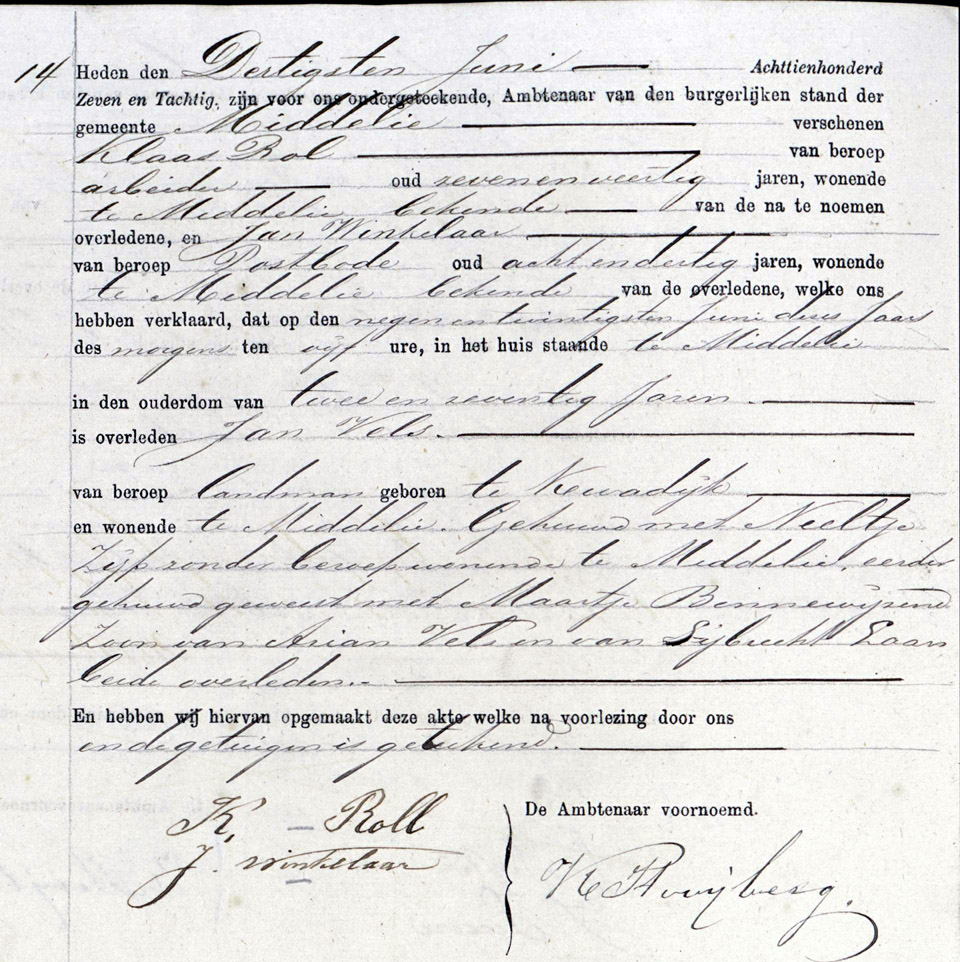 14 Heden den Dertigsten Juni Achttienhonderd
Zeven en Tachtig, zijn voor ons ondergeteekende, Ambtenaar van den burgerlijken stand der
gemeente Middelie verschenen
Klaas Rol van beroep
arbeider oud zevenenveertig jaren, wonende
te Middelie bekende van de na te noemen
overledene, en Jan Winkelaar
van beroep Postbode oud achtendertig jaren, wonende
te Middelie bekende van de overledene, welke ons
hebben verklaard, dat op den negenentwintigsten Juni dezes Jaars
des morgens ten vijf ure, in het huis staande te Middelie
in den ouderdom van twee en zeventig Jaren
is overleden Jan Vels.
van beroep landman geboren te Kwadijk
en wonende te Middelie. Gehuwd met Neeltje
Zijp zonder beroep wonende te Middelie, eerder
gehuwd geweest met Maartje
Zoon van Arian Vels en van Sijbrecht Laan
beide overleden.
En hebben wij hiervan opgemaakt deze akte welke na voorlezing door ons
en de getuigen is geteekend.
K. Roll
J. Winkelaar
De Ambtenaar voornoemd.